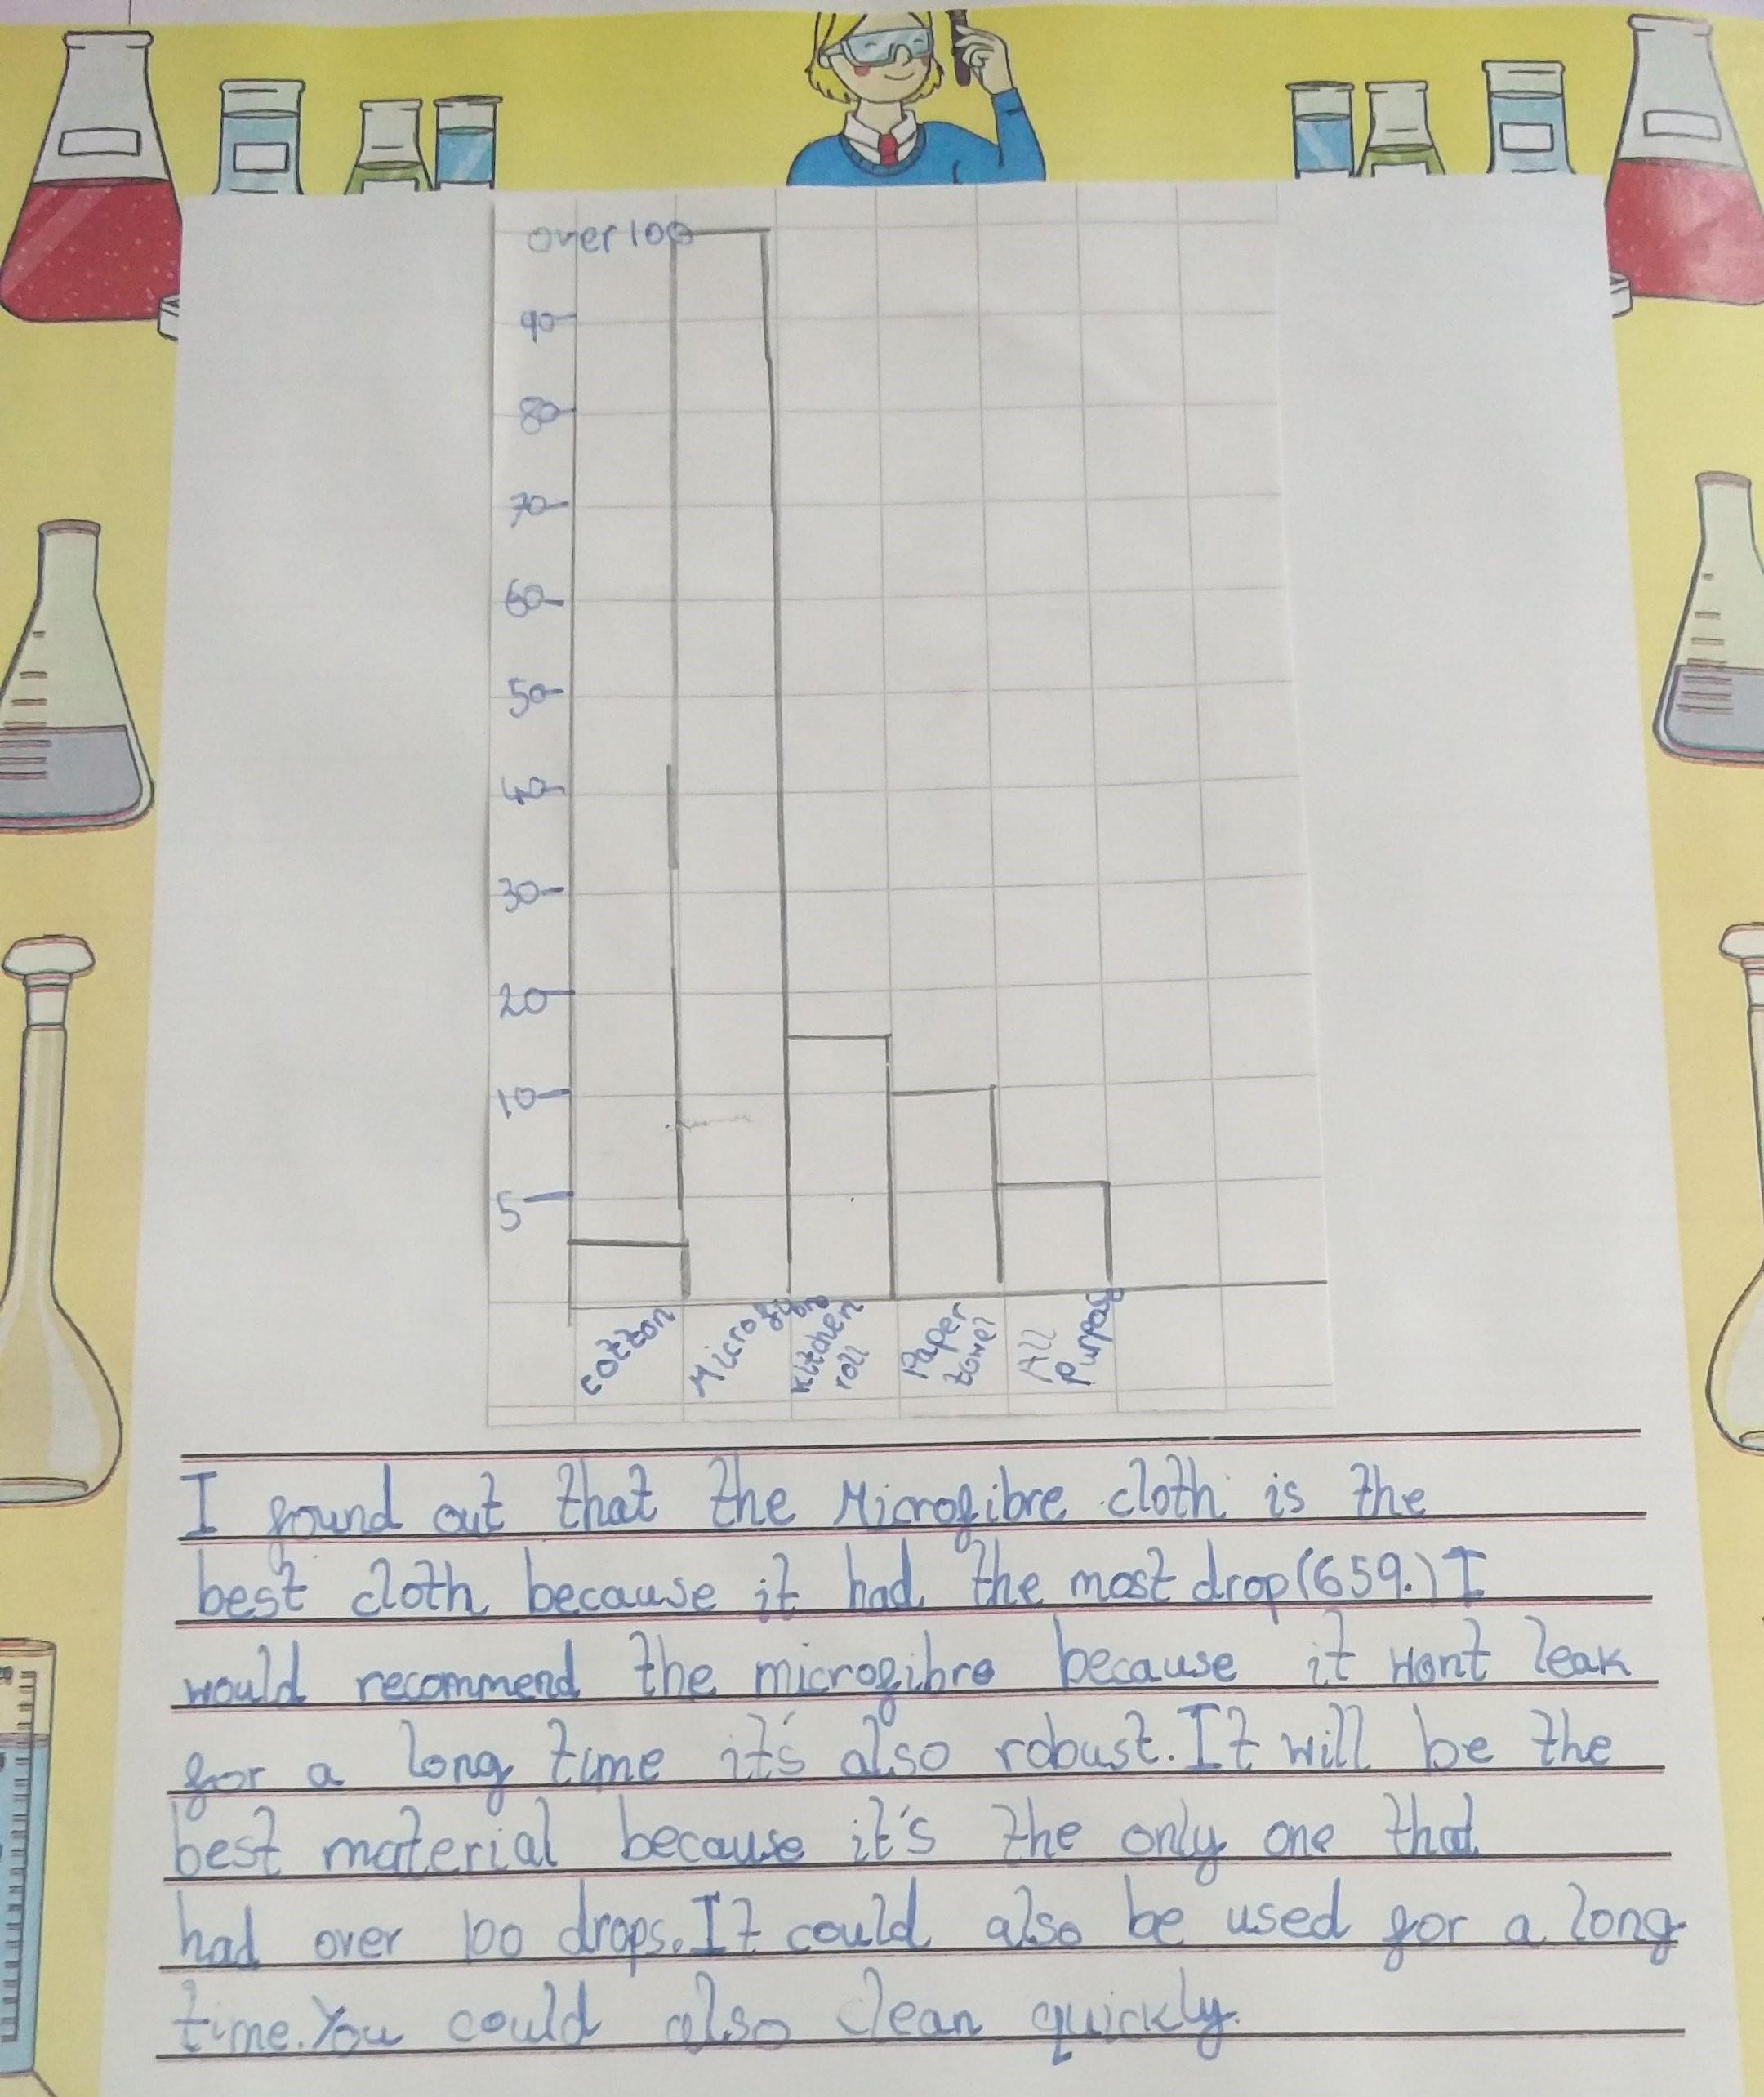 over 100
90
80
70
60
50
40
30
20
10
5
cotton
Micro fibre
Kitchen
roll
Paper
towel
All
Purpos
I found out that the Microfibre cloth is the
best cloth because it had the most drop (659.) I
would recommend the microfibre because it wont leak
for a long time it's also robust. It will be the
best material because it's the only one that
had over 100 drops. It could also be used for a long
time. You could also clean quickly.